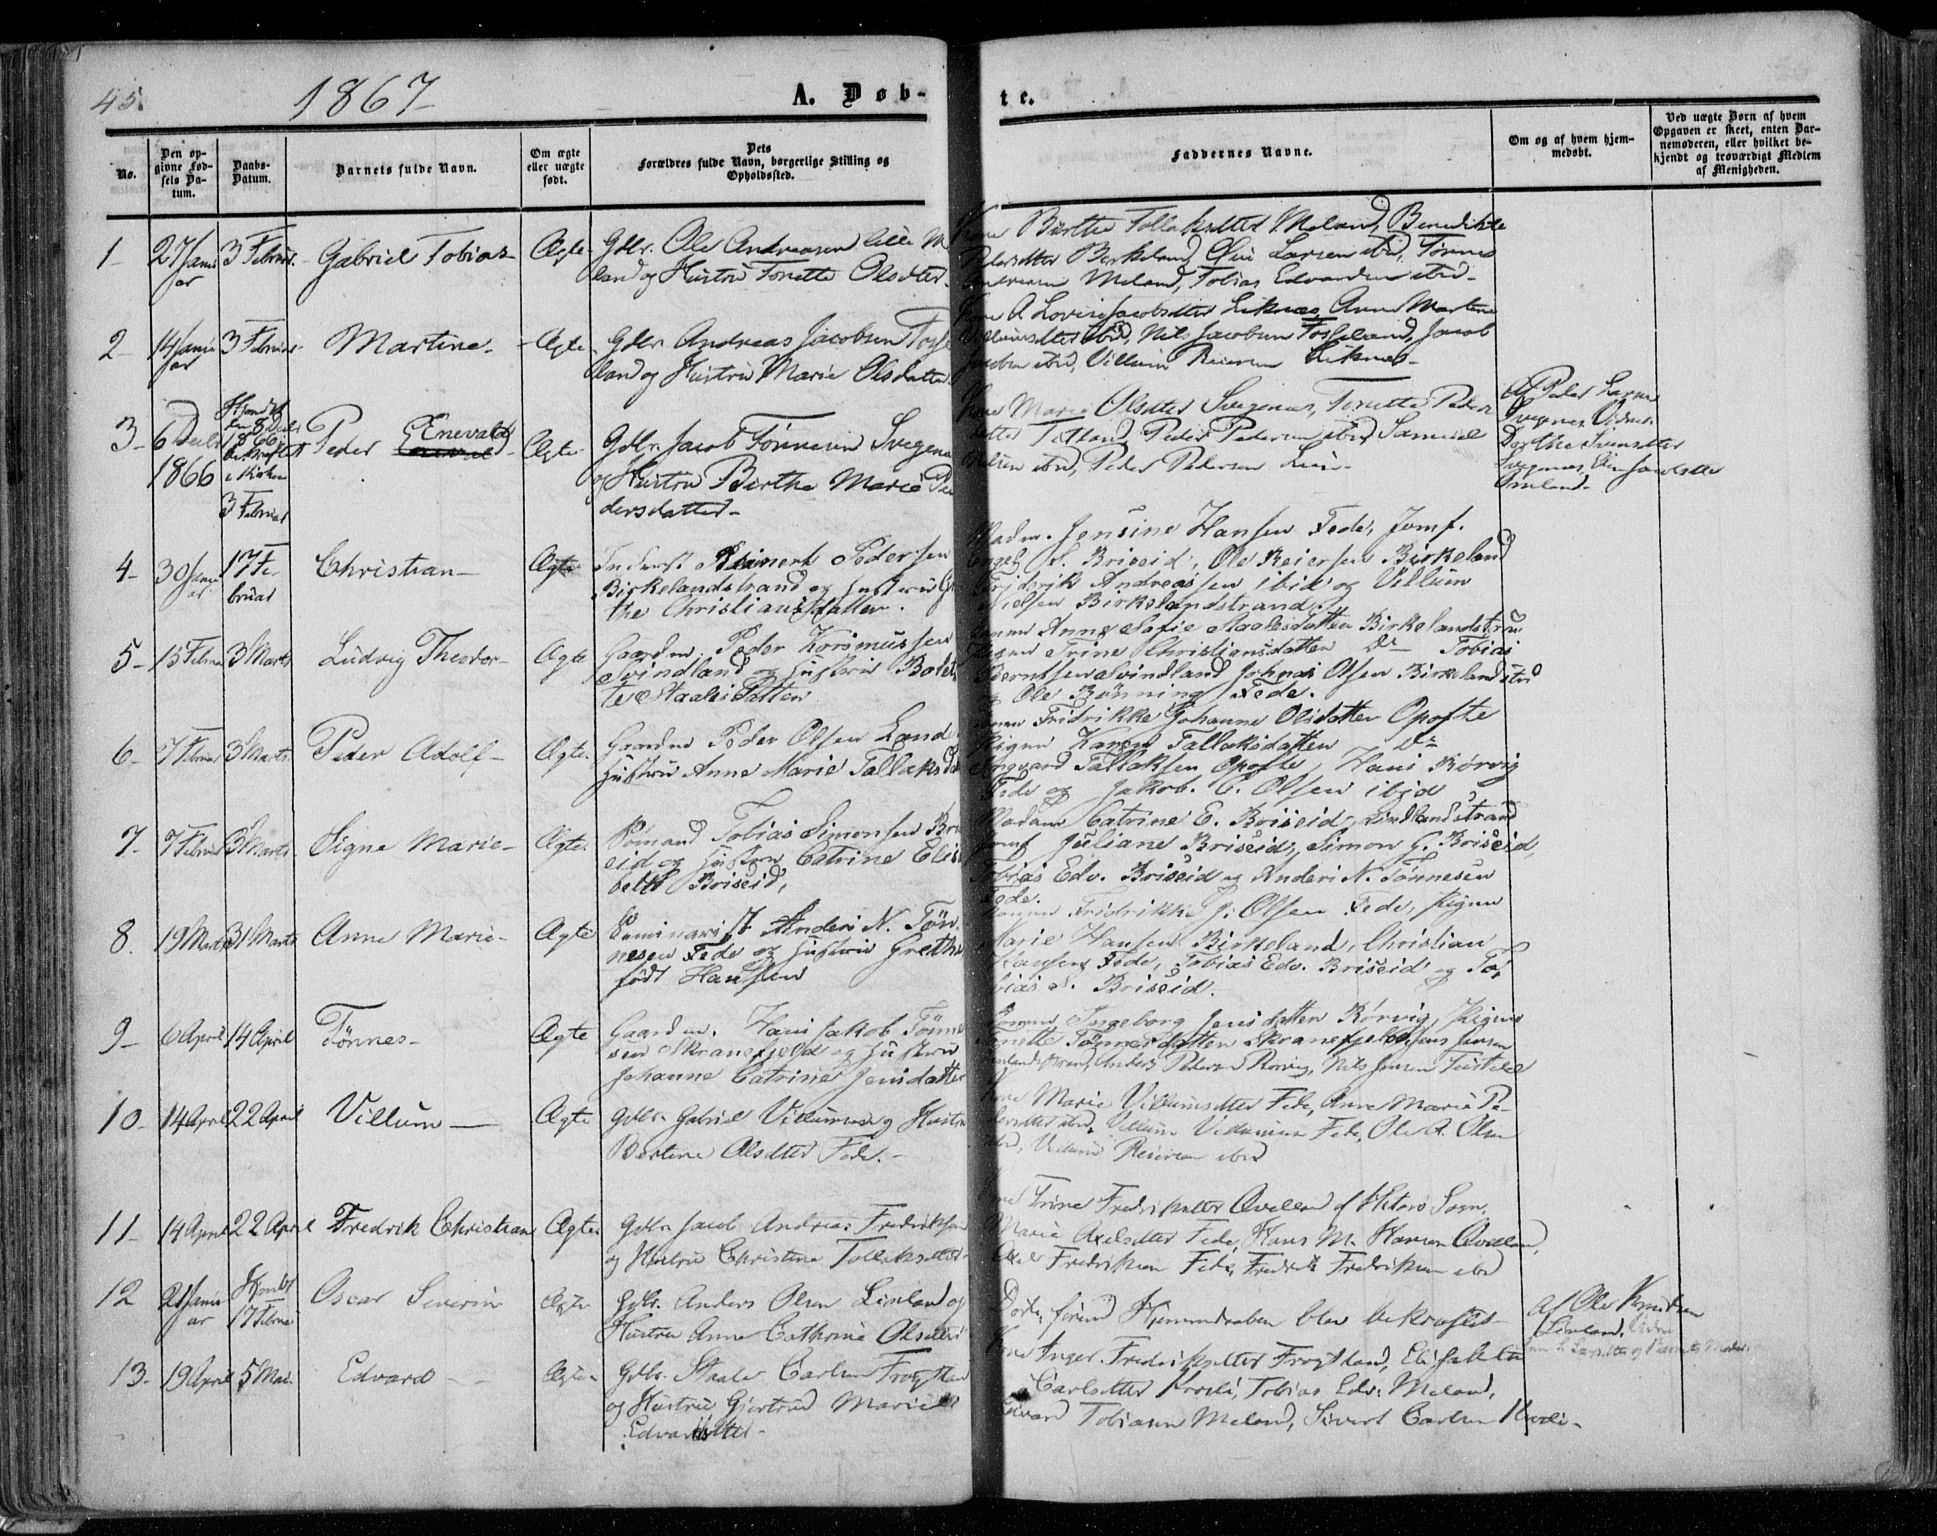 45.
1867
A. Døb-
te.
No.
Den op-
givne Fød-
sels Da-
tum.
Daabs-
Datum.
Barnets fulde Navn.
Om ægte
eller uægte
født.
Dets
Forældres fulde Navn, borgerlige Stilling og
Opholdssted.
Faddernes Navne.
Om og af hvem hjem-
medøbt.
Ved uægte Børn af hvem
Opgaven er skeet, enten Bar-
nemoderen, eller hvilket be-
kjendt og troværdigt Medlem
af Menigheden.
1- 27 Janu
ar
3 Februar
Gabriel Tobias-
Ægte
Gdbr. Ole Andreasen lille M
land og Hustru Tonette Olsdtter-
Birthe Tollaksdtter Meland, Benedikte
Pedersdtter Birkeland, Larsen ibid, Tønnes
Andreasen Meland, Tobias Edvardsen ibid-
2- 14 Janu
ar
3 Februar
Martine-
-Ægte-
Gdbr. Andreas Jacobsen Fosse
land og Hustru Marie Olsdatter
Kone A. Lovise Jacobsdtter Liknes, Anne Martine
Villumsdtter ibid, Nils Jacobsen Fosseland, Jacob
Jacobsen ibid, Villum Reiersen Liknes-
3- 6 Decbr
1866
Hjemdøbt
den 8 Decbr
1866
bekræftet
i Kirken
3 Februar
Peder Enevald-
Ægte-
Gdbr. Jacob Tønnesen Svegenes
og Hustru Birthe Marie Pe
dersdatter-
Kone Marie Olsdtter Svegenes, Tonette Peders
datter Tetland, Peder Pedersen ibid, Samuel
ibid, Peder Pedersen
Af Peder Larsen
Svegenes, Vidner
Dorthe Svensdtter
Svegnes, Jacobsdtter
Omland-
4- 30 Janu
ar
17 Fe-
bruar
Christian-
Ægte
Inderst Reinert Pedersen
Birkelandstrand og Hustru
the Christiansdatter.
Madm. Jensine Hansen Fede, Jomf.
Engel S. Briseid, Ole Reiersen Birkeland
Friderik Andreassen ibid og Villum
Nielsen Birkelandstrand.
5- 15 Februar
3 Marts
Ludvig Theodor-
Ægte
Gaardm. Peder Korsmussen
Svindland og Hustru Bolet
te Staalesdatter
Konen Anne Sofie Staalesdatter Birkelandstrand
Pigen Trine Christiansdatter Do Tobias
Berntsen Svindland Johnas Olsen Birkelandstrd
og Ole Rønning Fede.
6- 7 Februar
3 Marts
Peder Adolf-
Ægte.
Gaardm Peder Olsen Lande
Hustru Anne Marie Tallaksdat
Konen Fridrikke Johanne Olsdatter Opofte
Pigen Karen Tallaksdatter Do
Tallaksen Opofte, Hans Rørvig
Fede og Jakob. C. Olsen ibid
7- 7 Februar
3 Marts
Signe Marie-
Ægte.
Sømand Tobias Simonsen Bris
eid og Hustru Catrine Elisa
beth Briseid,
Madam Catrine E. Briseid, Lindlandstrand
Jomf Juliane Briseid, Simon G. Briseid,
Tobias Edv. Briseid og Anders N. Tønnesen
Fede.
8. 19 Marts
31 Marts
Anne Marie-
Ægte
Seminarist Anders N. Tøn-
nesen Fede og Hustru Grethe
født Hanssen
Konen Fridrikke J. Olsen Fede, Pigen
Marie Hansen Birkeland, Christian
Hansen Fede, Tobias Edv. Briseid og To,
bias S. Briseid.
9- 6 April
14 April
Tønnes-
Ægte
Gaardm. Hans Jakob Tønne
sen Skranefjeld og Hustru
Johanne Catrine Jensdatter
Konen Ingeborg Jensdatter Rørvig, Pigen
Tonette Tønnesdatter Skranefjeld, Jens Jensen
Anders Pedersen Rørvig, Nils Jensen
10- 14 April
22 April
Villum-
Ægte
Gdbr. Gabriel Villumsen og Hustru
Bertine Olsdtter Fede.-
Kone Marie Villumsdtter Fede, Anne Marie Pe-
dersdtter ibid, Villum Villumsen Fede, Ole A. Olsen
ibid, Villum Reiersen ibid
11- 14 April
22 April
Fredrik Christian
Ægte-
Gdbr. Jacob Andreas Fredriksen
og Hustru Christine Tollaksdtter-
Kone Trine Fredriksdtter Qvellan af Hitterø Sogn,
Marie Axelsdtter Fede, Hans M. Hansen Qvellan,
Axel Fredriksen Fede, Fredrik Fredriksen ibid
12 21 Janu
ar
Hjmdbt
17 Februar
Oscar Severin
Ægte
Gdbr. Anders Olsen Linland og
Hustru Anne Cathrine Olsdtter
Døde, førend Hjemmedaaben blev bekræftet-
Af Ole Knudsen
Linland,
13- 19 April
5 Mai.
Edvard - -
Ægte-
Gdbr. Staale Carlsen Frøytland
og Hustru Gjertrud Marie
Edvardsdtter-
Kone Inger Fredriksdtter Frøytland, Elisabeth
Carlsdtter Kvæli, Tobias Edv. Meland,
Edvard Tobiasen Meland, Sivert Carlsen Kvæli-